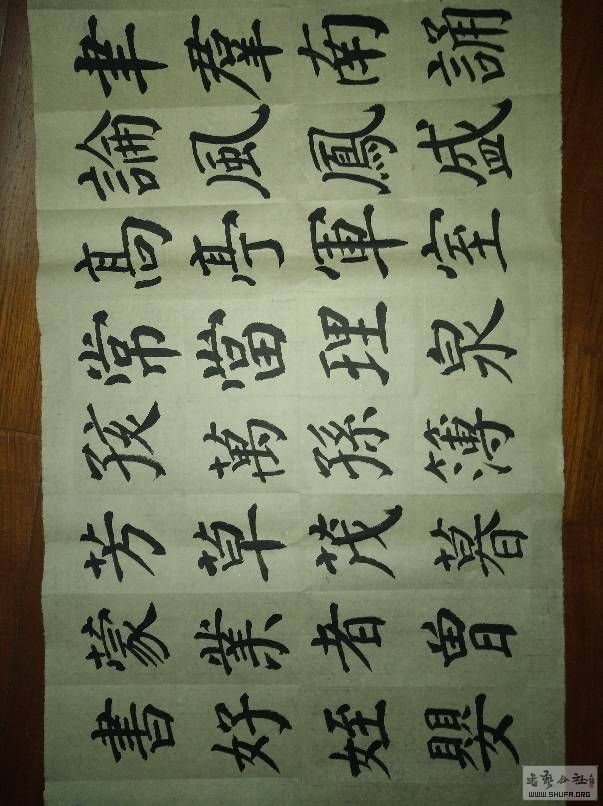 聿羣南誦
論風鳳盛
高亭軍室
常當理泉
孩萬孫簿
芳草茂暮
蒙業者曾
書好姪嬰
書藝公社
WWW.SHUFA.ORG